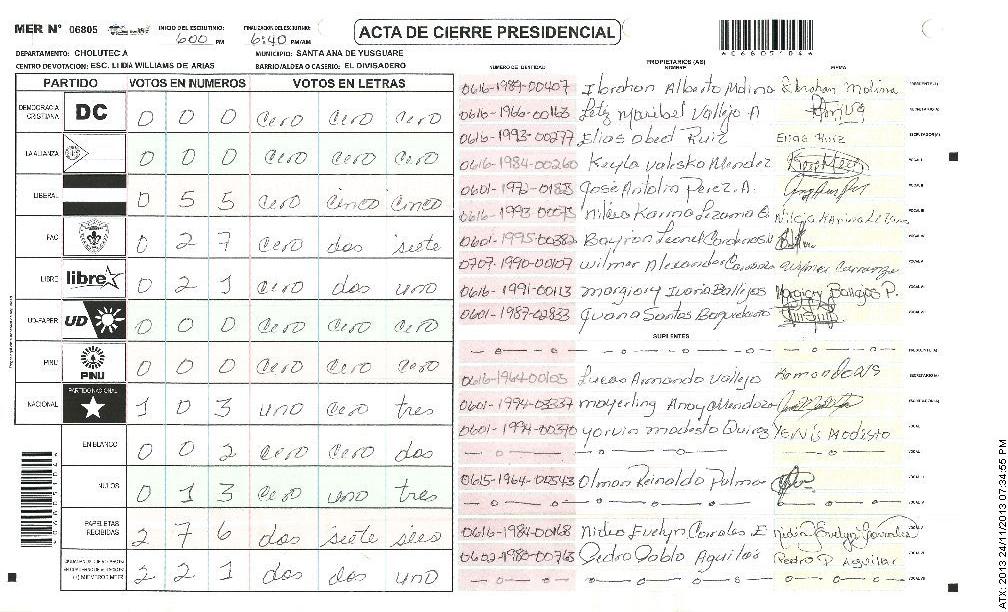 MER N° 06805
INICIO DEL ESCRUTINIO: 600 PM
FINALIZACION DEL ESCRUTINIO: 6:40 PM/AM
ACTA DE CIERRE PRESIDENCIAL
DEPARTAMENTO: CHOLUTECA
MUNICIPIO: SANTA ANA DE YUSGUARE
CENTRO DE VOTACION: ESC. LIDIA WILLIAMS DE ARIAS
BARRIO/ALDEA O CASERIO: EL DIVISADERO
PARTIDO VOTOS EN NUMEROS VOTOS EN LETRAS
DEMOCRACIA CRISTIANA DC 0 0 0 cero cero cero
LA ALIANZA 0 0 0 cero cero cero
LIBERAL 0 5 5 cero cinco cinco
PAC 0 2 7 cero dos siete
LIBRE libre 0 2 1 cero dos uno
UD-FAPER UD 0 0 0 cero cero cero
PINU PINU 0 0 0 cero cero cero
NACIONAL PARTIDO NACIONAL 1 0 3 uno cero tres
EN BLANCO 0 0 2 cero cero dos
NULOS 0 1 3 cero uno tres
PAPELETAS RECIBIDAS 2 7 6 dos siete seis
2 2 1 dos dos uno
NUMERO DE IDENTIDAD PROPIETARIOS (AS) NOMBRE FIRMA
0616-1989-00407 Ibrahan Alberto Molina Ibrahan Molina
0616-1966-00163 Letz Maribel Vallejo A
0616-1993-00277 Elias obed Ruiz Elias Ruiz
0616-1984-00260 Keyla Valeska Mendez
José Antolin Perez. A.
0616-1993-00073 Karina Lezama
0601-1995-00382 Bayron Leonel Cardenas
0707-1990-00107 Wilmar Alexander
0616-1991-00113 Margiory Ivaria Ballejos Ballejos P.
0601-1987-02833 Juana Santos Baquedano
SUPLENTES
0616-1964-00105 Lucas Armando Vallejo
0601-1994-03337 mayerling Anoya Mendoza
0601-1994-00370 yorvin modesto Quiroz Modesto
0615-1964-00543 Olman Reinaldo Palma
0616-1984-00168 Nidia Evelyn Corrales E Nidia Evelyn
0602-1980-00763 Pedro Pablo Aguilar Pedro P Aguilar
ATX: 2013 24/11/2013 07:34:55 PM